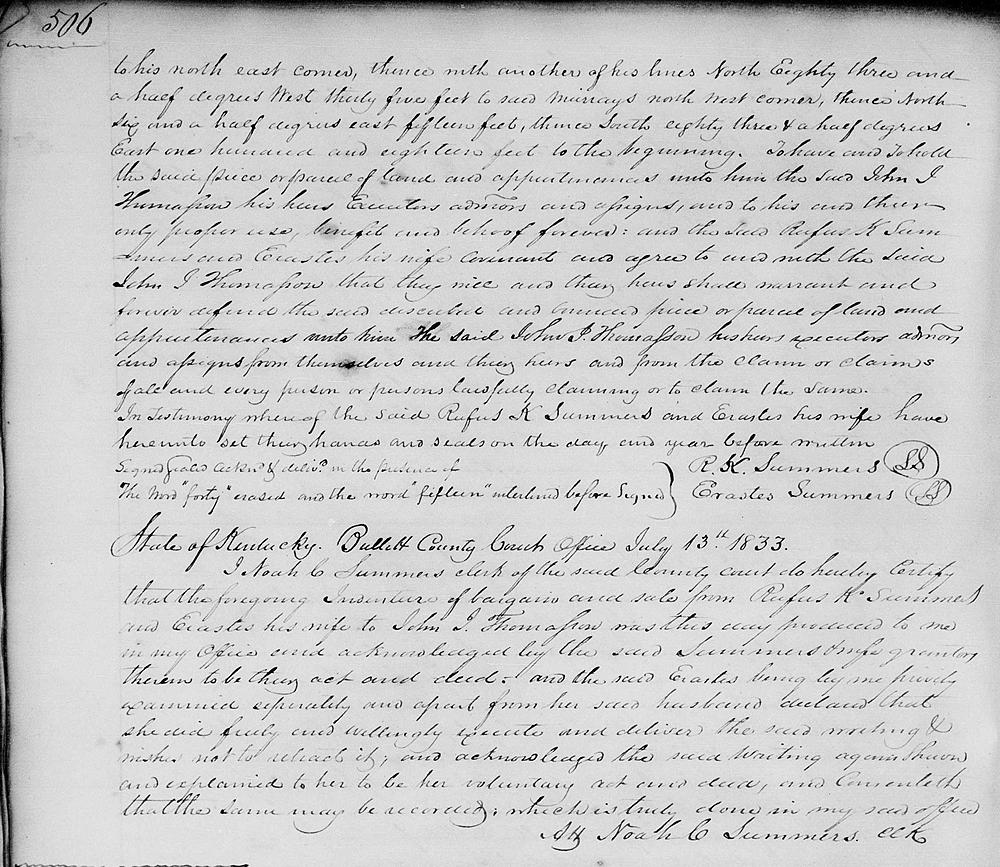 506
to his north east corner, thence with another of his lines North Eighty three and
a half degrees West thirty five feet to said Murrays north west corner, thence North
Six and a half degrees east fifteen feet, thence South eighty three & a half degrees
East one hundred and eighteen feet to the beginning. To have and To hold
the said piece or parcel of land and appurtenances unto him the said John J
Thomasson his heirs Executors admors and assigns, and to his and their
only proper use, benefit and behoof forever: and the said Rufus K Sum
mers and Erastes his wife covenant and agree to and with the said
John J Thomasson that they will and their heirs shall warrant and
forever defend the said described and bounded piece or parcel of land and
appurtenances unto him The said John J. Thomasson his heirs executors admors
and assigns from themselves and their heirs and from the claim or claims
of all and every person or persons lawfully claiming or to claim the same.
In Testimony whereof the said Rufus K Summers and Erastes his wife have
hereunto set their hands and seals on the day and year before written
Signed sealed ackn.d & deliv.d in the presence of
The word "forty" erased and the word "fifteen" interlined before Signed
R. K. Summers SS
Erastes Summers SS
State of Kentucky. Bullitt County Court Office July 13th 1833.
I Noah C Summers clerk of the said County court do hereby Certify
that the foregoing Indenture of bargain and sale from Rufus K Summers
and Erastes his wife to John J. Thomasson was this day produced to me
in my Office and acknowledged by the said Summers & wife grantors
therein to be their act and deed - and the said Erastes being by me privily
examined seperately and apart from her said husband declared that
she did freely and willingly execute and deliver the said writing &
wishes not to retract it; and acknowledged the said Writing again shewn
and explained to her to be her voluntary act and deed, and Consenteth
that the same may be recorded; which is truly done in my said office
Att Noah C Summers. Clk